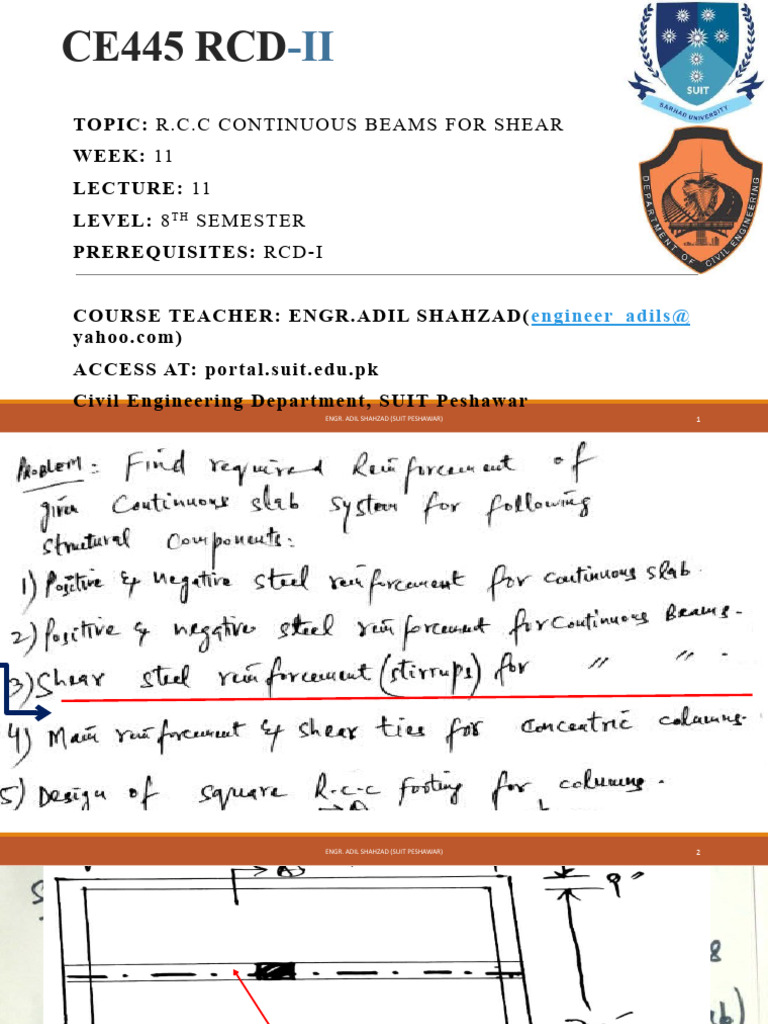 CE445 RCD-II
SUIT
SARHAD UNIVERSITY
DEPARTMENT OF CIVIL ENGINEERING
TOPIC: R.C.C CONTINUOUS BEAMS FOR SHEAR
WEEK: 11
LECTURE: 11
LEVEL: 8TH SEMESTER
PREREQUISITES: RCD-I
COURSE TEACHER: ENGR.ADIL SHAHZAD(engineer_adils@
yahoo.com)
ACCESS AT: portal.suit.edu.pk
Civil Engineering Department, SUIT Peshawar
ENGR. ADIL SHAHZAD (SUIT PESHAWAR) 1
Problem: Find required Reinforcement of
given Continuous slab system for following
structural Components:
1) Positive & negative steel reinforcement for continuous slab.
2) Positive & negative steel reinforcement for Continuous Beams.
3) Shear steel reinforcement (stirrups) for " ".
4) Main reinforcement & shear ties for concentric columns.
5) Design of square R.C.C footing for columns.
ENGR. ADIL SHAHZAD (SUIT PESHAWAR) 2
9"
8
b)